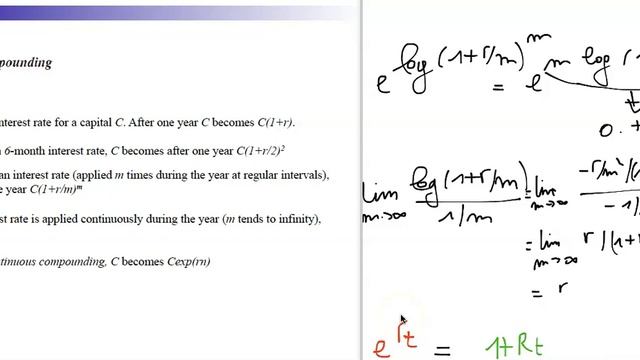 pounding
nterest rate for a capital C. After one year C becomes C(1+r).
6-month interest rate, C becomes after one year C(1+r/2)²
an interest rate (applied m times during the year at regular intervals),
e year C(1+r/m)ᵐ
st rate is applied continuously during the year (m tends to infinity),
tinuous compounding, C becomes Cexp(rn)
e^log(1+r/m)^m = e^m log(1
0.
lim m→∞ log(1+r/m) / 1/m = lim m→∞ -r/m²/(1 / -1/
= lim m→∞ r/(1+r
= r
e^rt = 1+Rt